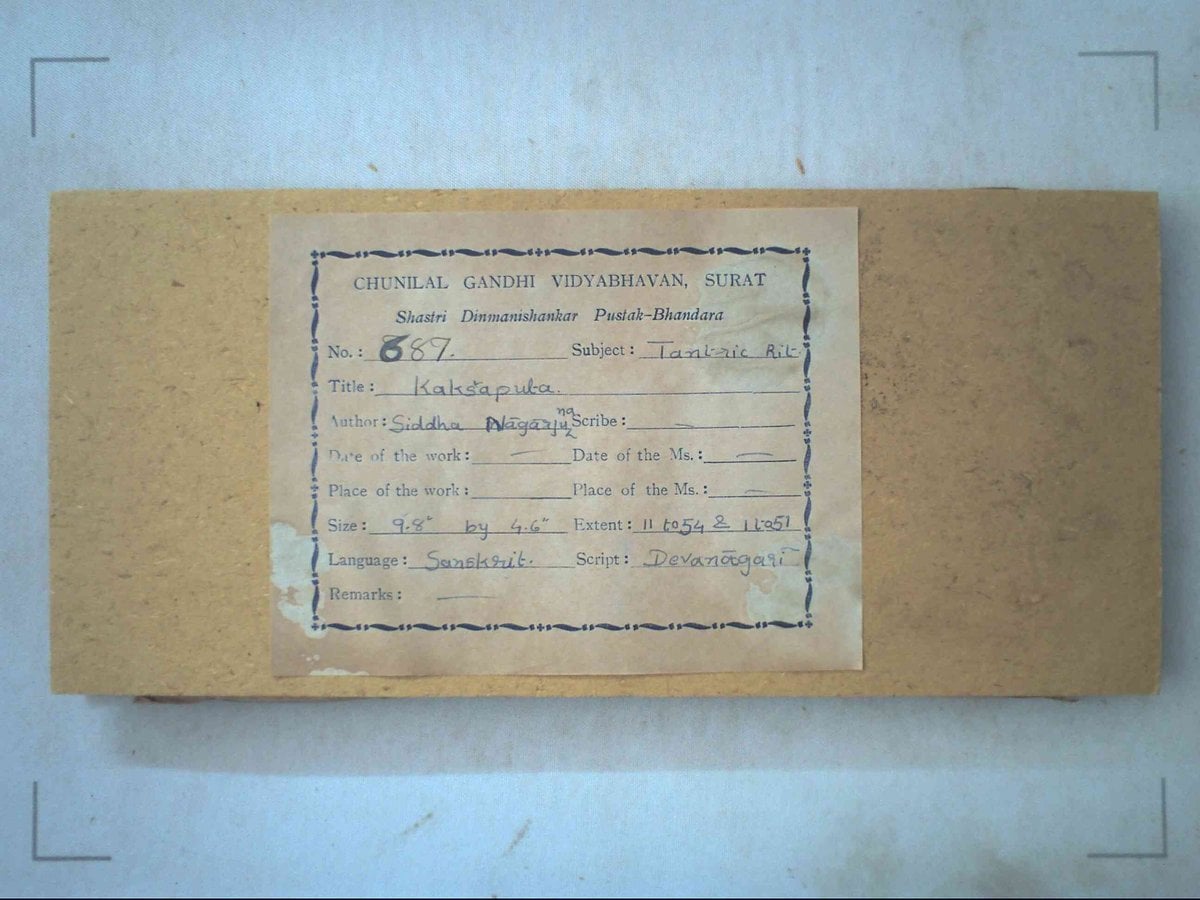 CHUNILAL GANDHI VIDYABHAVAN, SURAT
Shastri Dinmanishankar Pustak-Bhandara
No.: 687. Subject: Tantric Rit.
Title: Kakṣapuṭa.
Author: Siddha Nāgārjuna Scribe: —
Date of the work: — Date of the Ms.: —
Place of the work: Place of the Ms.: —
Size: 9.8" by 4.6" Extent: 11 to 54 & 1 to 51
Language: Sanskrit. Script: Devanāgarī
Remarks: —